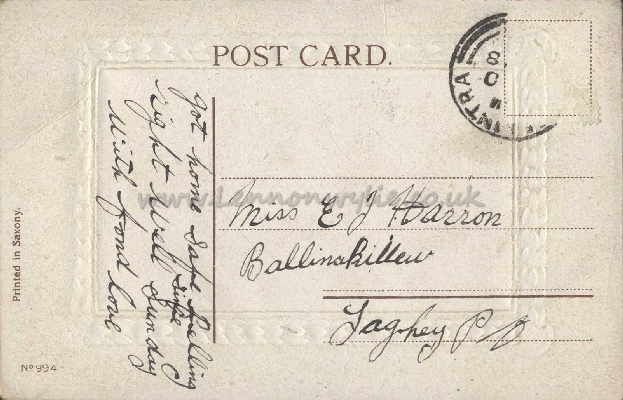 POST CARD.
got home safe feeling
right well since Sunday
With fond love
Miss E J Harron
Ballinakillew
Laghey P O
Printed in Saxony.
No 994
www.Lennonwylie.co.uk